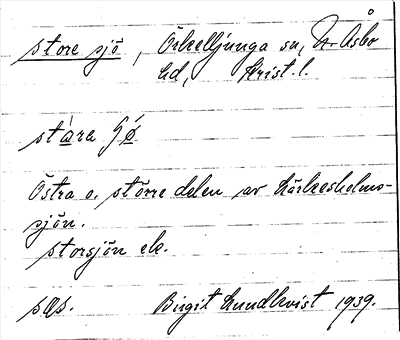 store sjö, Örkelljunga sn, N. Åsbo
hd, Krist. l.
stàra ʃǿ
Östra o. större delen av Härkesholms-
sjön.
storsjön ek.
sOs. Birgit Lundkvist 1939.